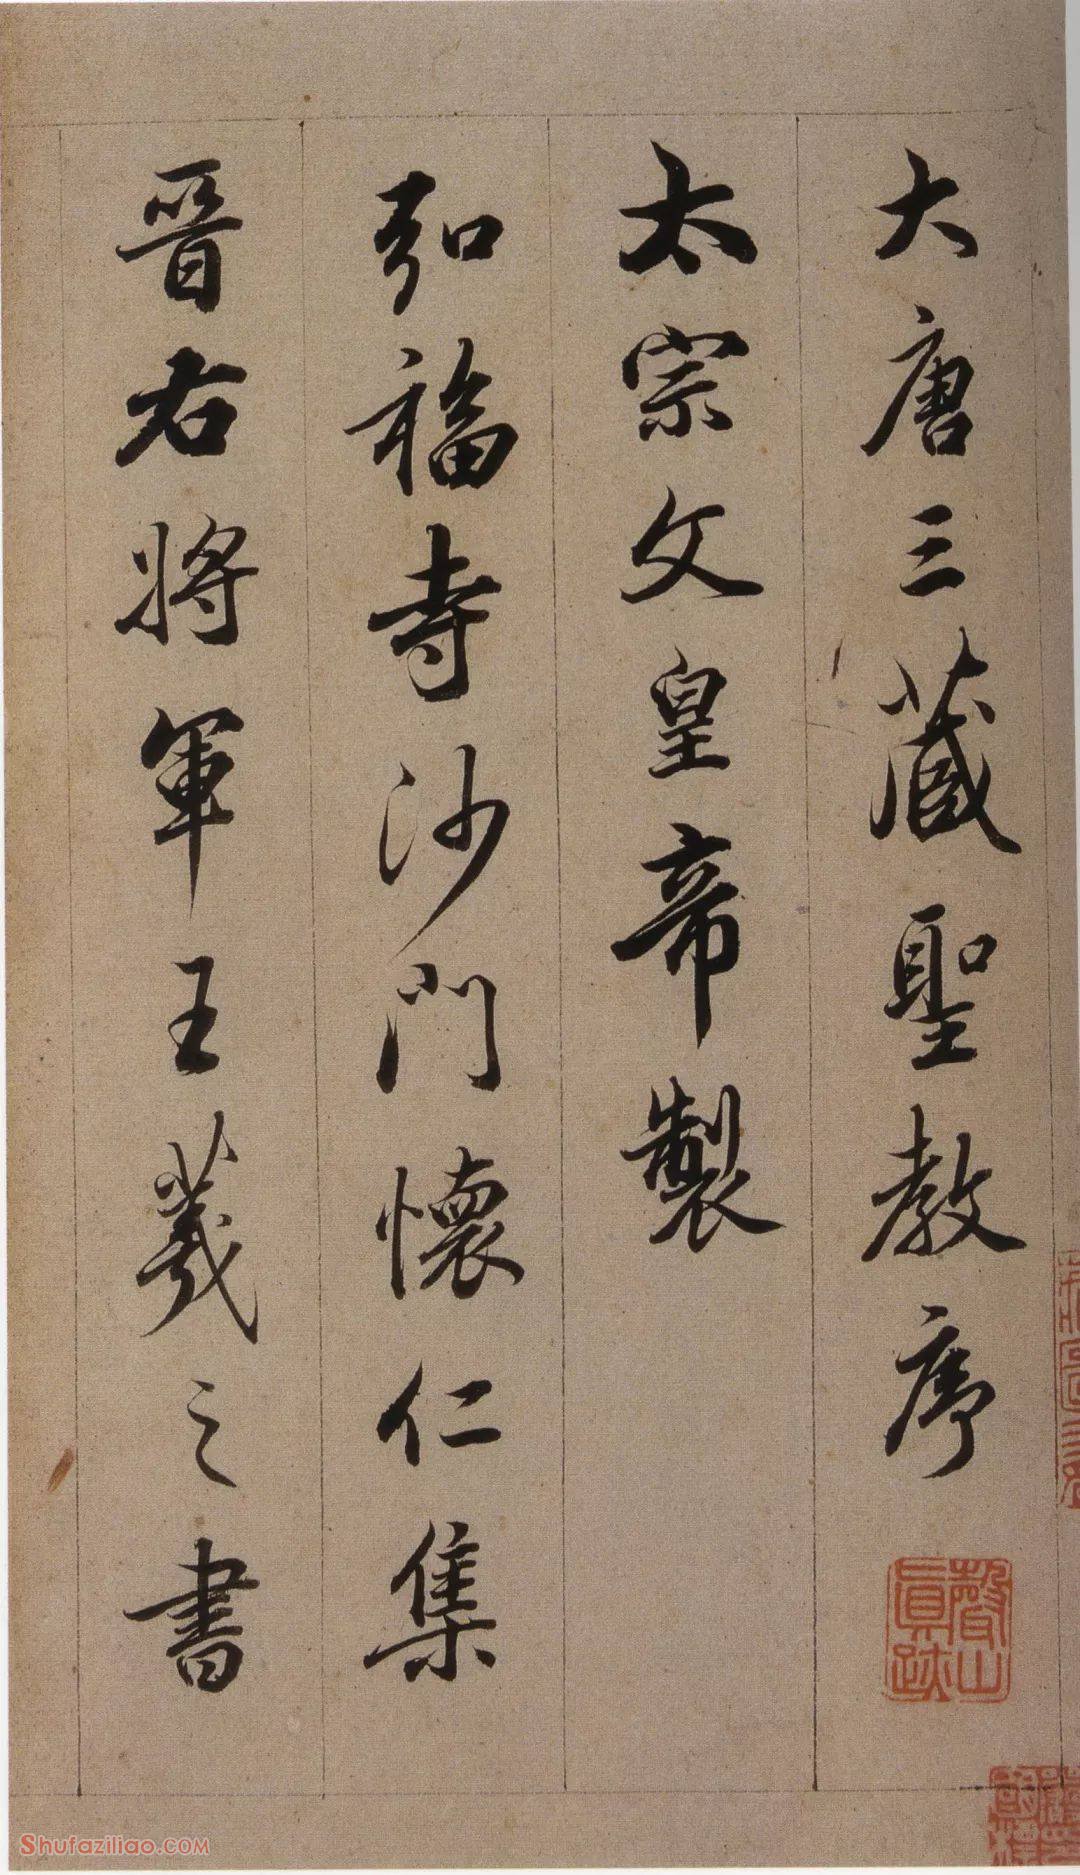 大唐三藏聖教序
太宗文皇帝製
弘福寺沙門懷仁集
晉右將軍王羲之書
磬山真跡
Shufaziliao.COM